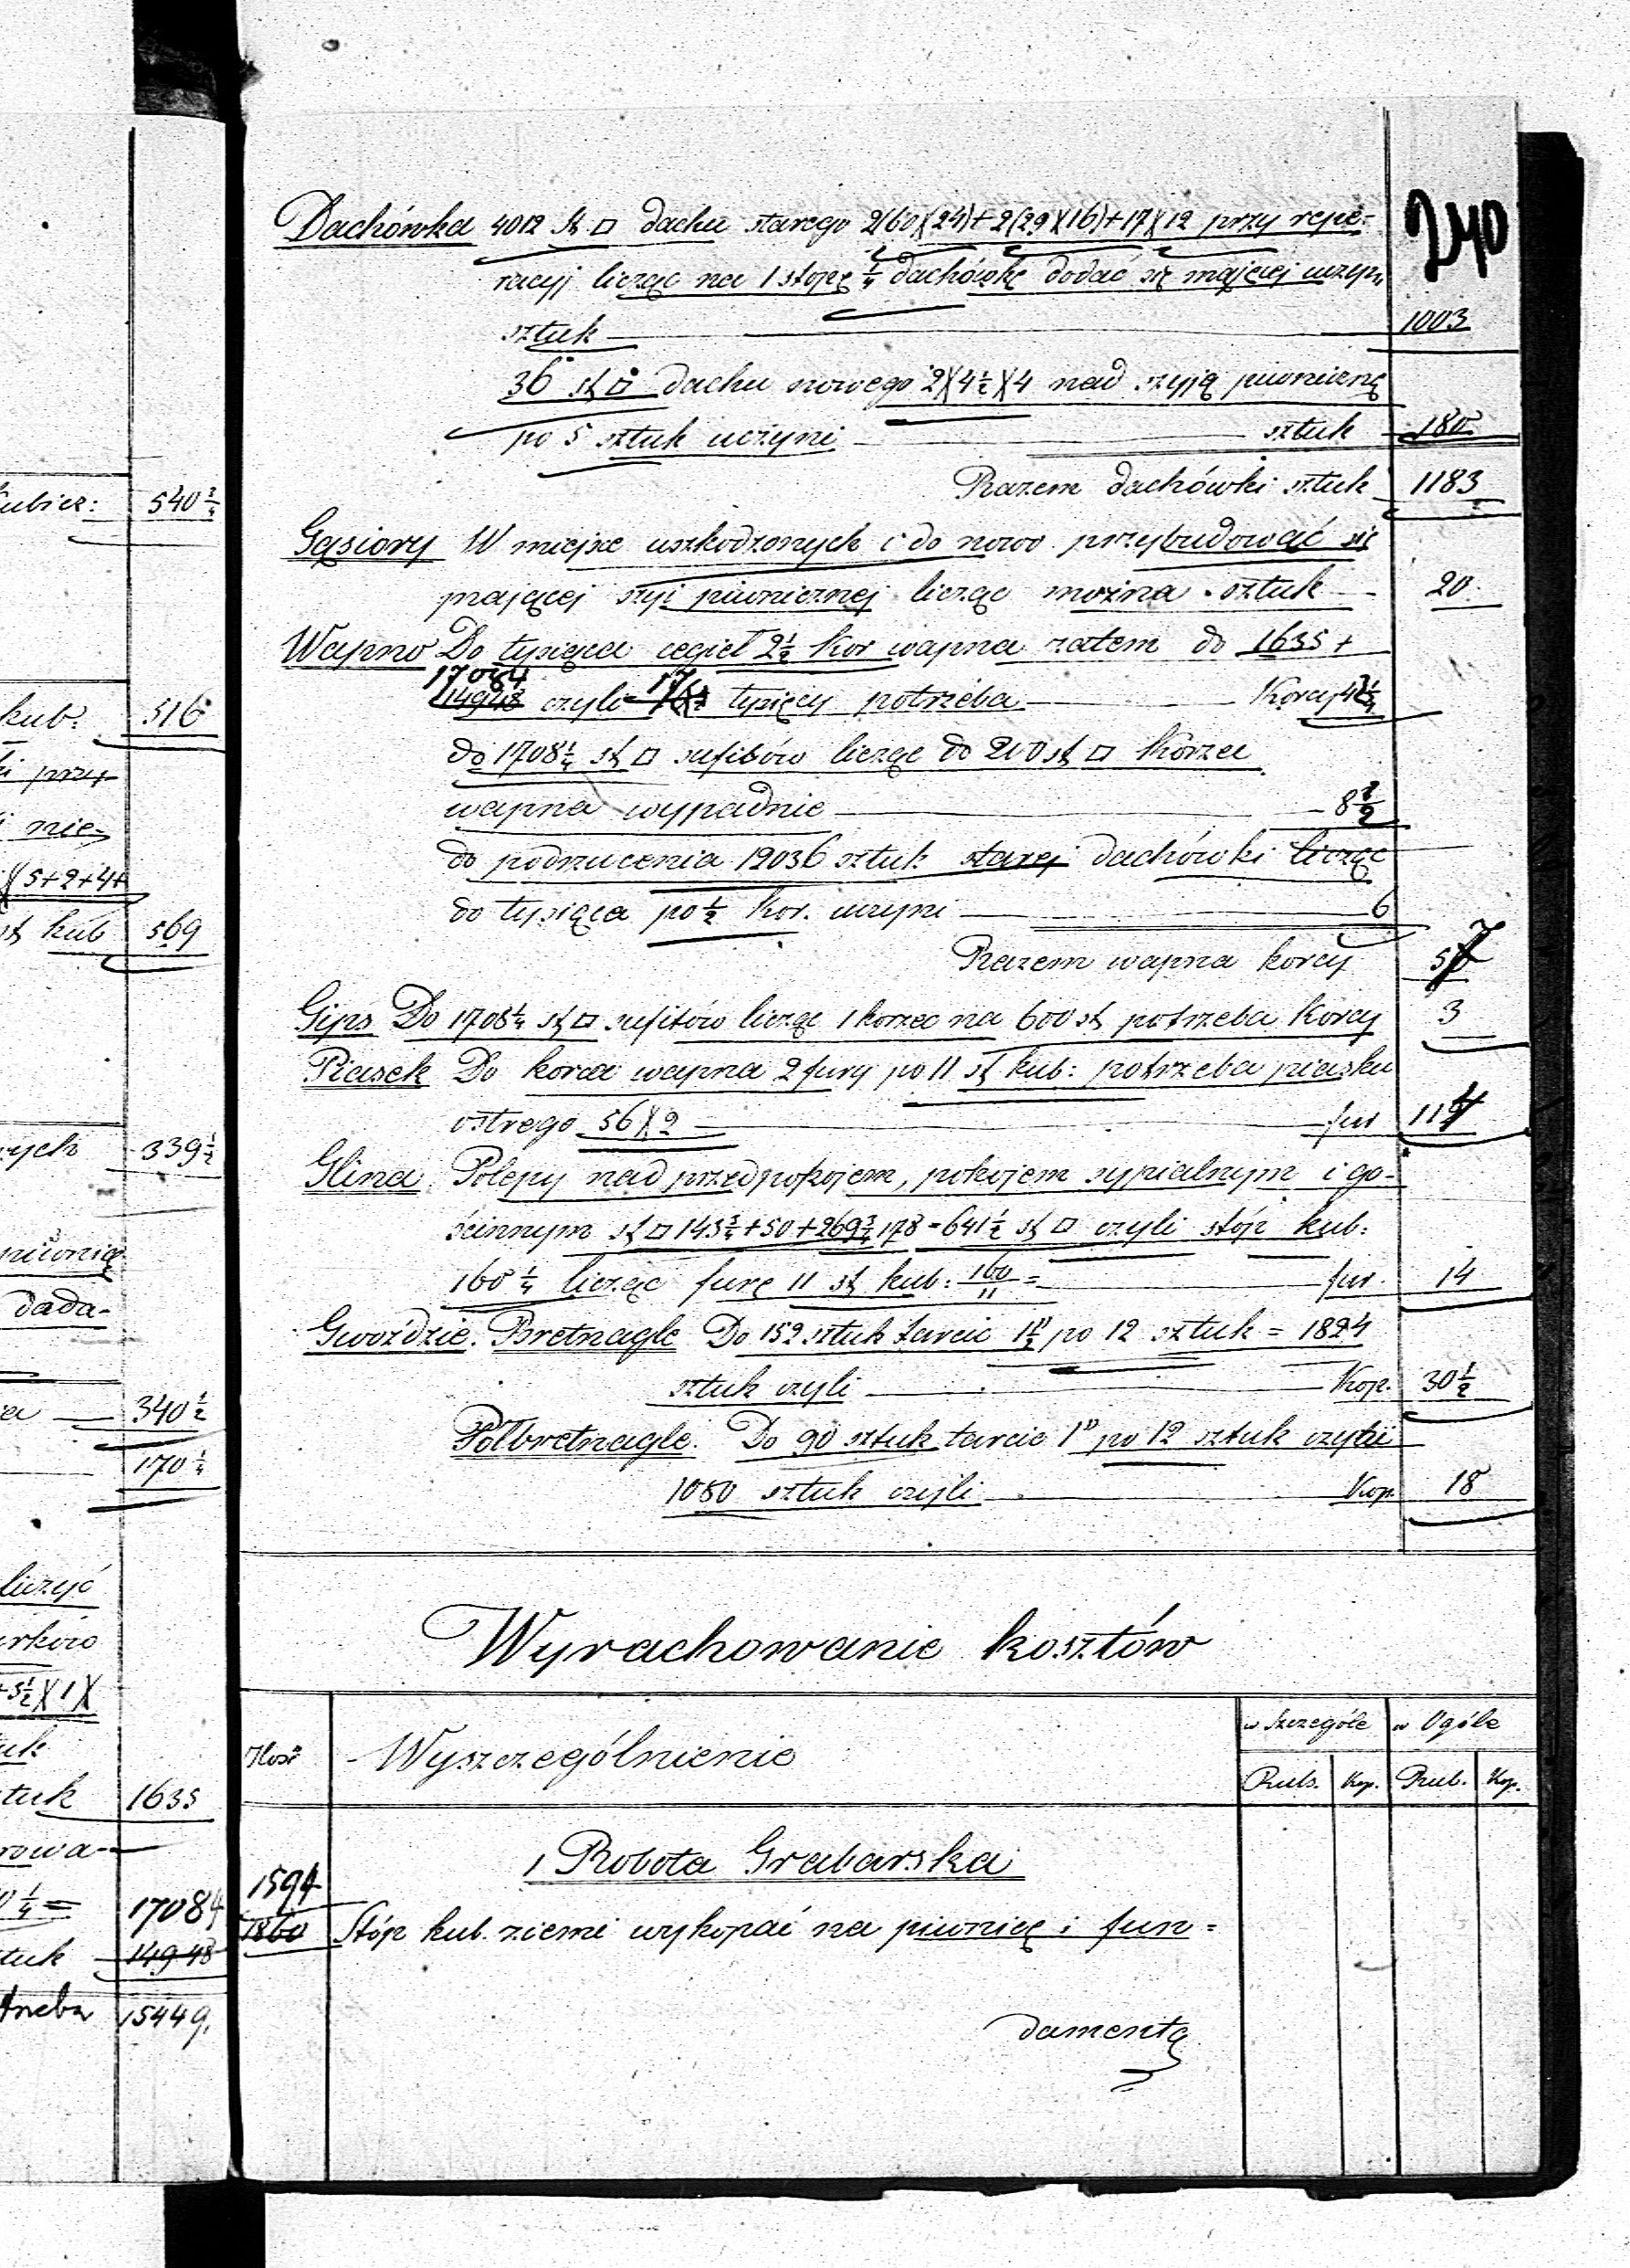 240
Dachówka 4012 st □ dachu starego 2(60)(24)+2(29)(16)+17)(12 przy repe-
racyj licząc na 1 stopę ¼ dachówkę dodać się mającej uczyni
sztuk 1003
36 st □ dachu nowego 2)(4½)(4 nad szyją piwniczną
po 5 sztuk uczyni sztuk 180
Razem dachówki sztuk 1183
Gąsiory W miejsce uszkodzonych i do nowo przybudować się
mającej szyi piwnicznej licząc można sztuk 20
Wapno Do tysiąca cegieł 2½ kor wapna zatem do 1635 +
17084
14948 czyli 17 tysięcy potrzeba Korcy 42½
do 1708¼ st □ sufitów licząc do 200 st □ korzec
wapna wypadnie 8½
do podrzucenia 12036 sztuk starej dachówki licząc
do tysiąca po ½ kor. uczyni 6
Razem wapna korcy 57
Gips Do 1708¼ st □ sufitów licząc 1 korzec na 600 st potrzeba Korcy 3
Piasek Do korca wapna 2 fury po 11 st kub: potrzeba piasku
ostrego 56)(2 fur 114
Glina Polepy nad przedpokojem, pokojem sypialnym i go-
ścinnym st □ 143¾+50+269¾ 178=641½ st □ czyli stóp kub:
160¼ licząc furę 11 st kub: 160/11 = fur 14
Gwoździe. Bretnagle Do 152 sztuk tarcic 1½" po 12 sztuk = 1824
sztuk czyli Kop. 30½
Półbretnagle. Do 90 sztuk tarcic 1" po 12 sztuk czyli
1080 sztuk czyli Kop. 18
Wyrachowanie kosztów
Ilość Wyszczególnienie w Szczególe w Ogóle
Rubs. Kop. Rub. Kop.
1 Robota Grabarska
1594
1860 Stóp kub. ziemi wykopać na piwnicę i fun=
damenta
ubicz: 540¾
kub: 316
i przy
nie-
)(5+2+4+
st kub 569
nych 339½
piwnicą
dada-
340½
170¼
liczyć
)(1)(
tuk 1635
rowa-
¼= 17084
tuk 14948
15449.